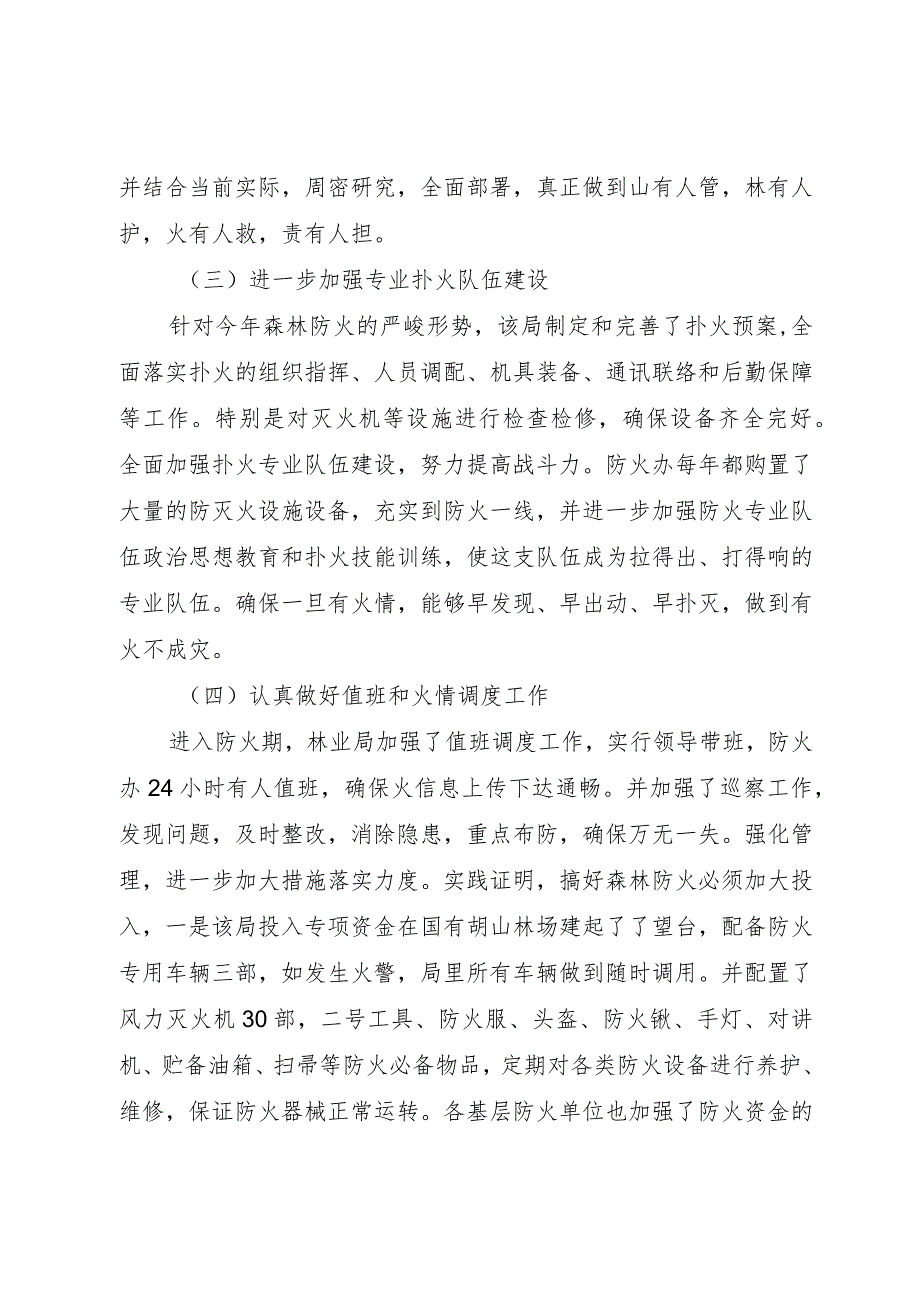 并结合当前实际，周密研究，全面部署，真正做到山有人管，林有人
护，火有人救，责有人担。
（三）进一步加强专业扑火队伍建设
针对今年森林防火的严峻形势，该局制定和完善了扑火预案,全
面落实扑火的组织指挥、人员调配、机具装备、通讯联络和后勤保障
等工作。特别是对灭火机等设施进行检查检修，确保设备齐全完好。
全面加强扑火专业队伍建设，努力提高战斗力。防火办每年都购置了
大量的防灭火设施设备，充实到防火一线，并进一步加强防火专业队
伍政治思想教育和扑火技能训练，使这支队伍成为拉得出、打得响的
专业队伍。确保一旦有火情，能够早发现、早出动、早扑灭，做到有
火不成灾。
（四）认真做好值班和火情调度工作
进入防火期，林业局加强了值班调度工作，实行领导带班，防火
办 24 小时有人值班，确保火信息上传下达通畅。并加强了巡察工作，
发现问题，及时整改，消除隐患，重点布防，确保万无一失。强化管
理，进一步加大措施落实力度。实践证明，搞好森林防火必须加大投
入，一是该局投入专项资金在国有胡山林场建起了了望台，配备防火
专用车辆三部，如发生火警，局里所有车辆做到随时调用。并配置了
风力灭火机 30 部，二号工具、防火服、头盔、防火锹、手灯、对讲
机、贮备油箱、扫帚等防火必备物品，定期对各类防火设备进行养护、
维修，保证防火器械正常运转。各基层防火单位也加强了防火资金的